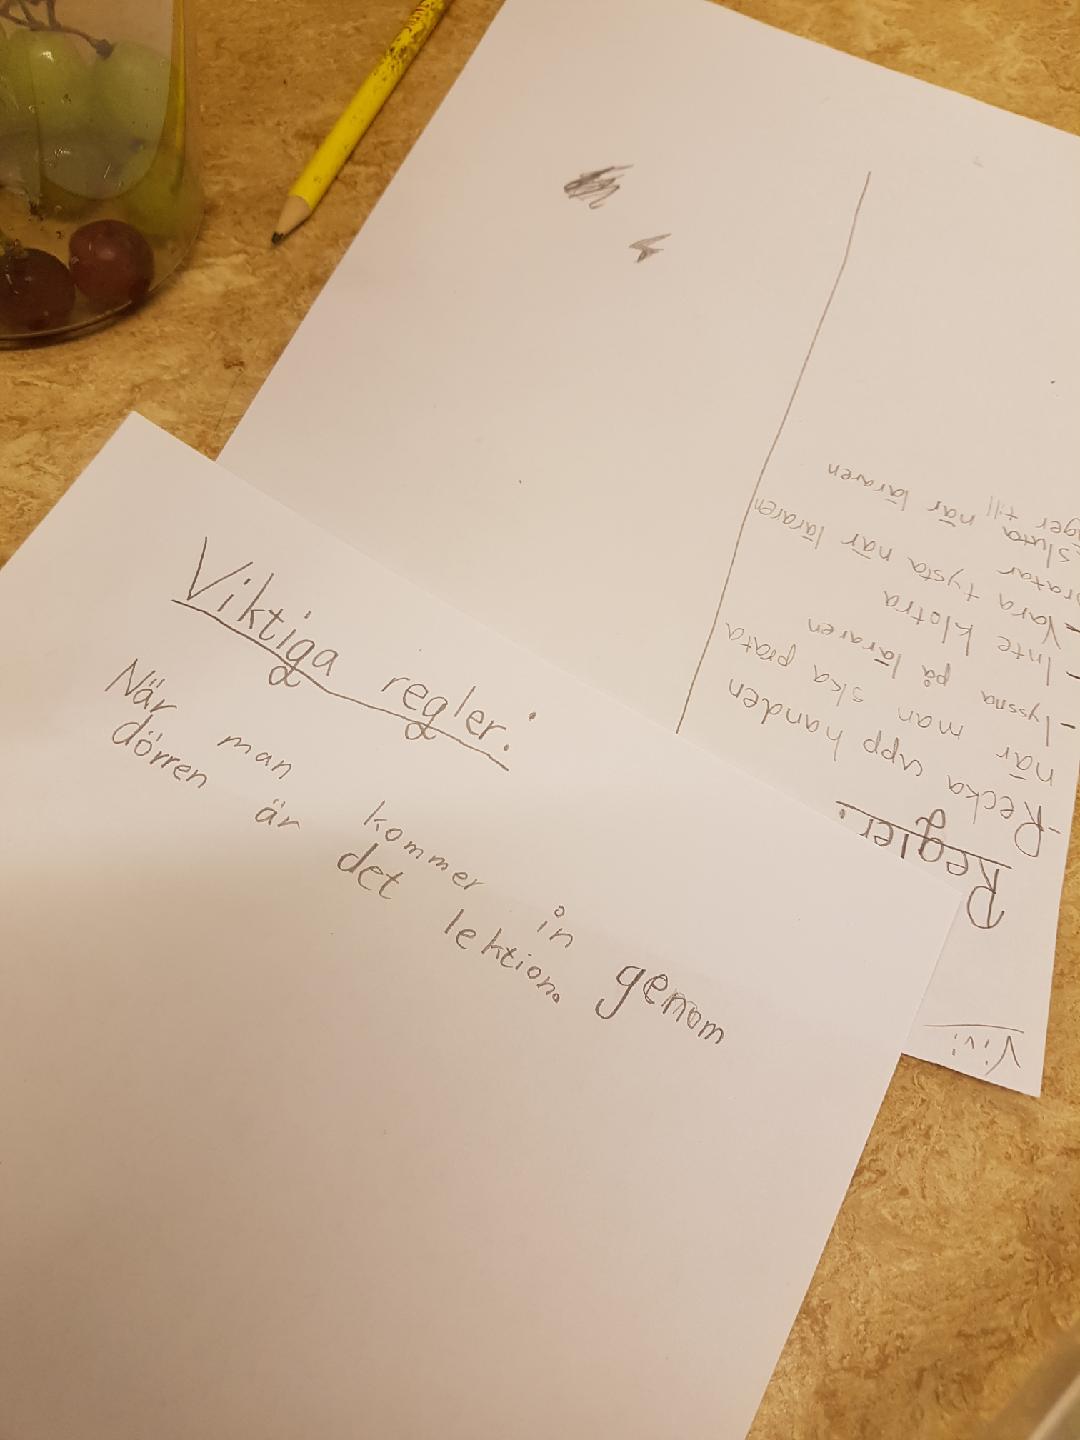 Viktiga regler:
När man kommer in genom
dörren är det lektion.
Vivi
Regler:
-Recka upp handen
när man ska prata
-lyssna på läraren
- Inte klotra
- Vara tysta när läraren
pratar
sluta när läraren
till